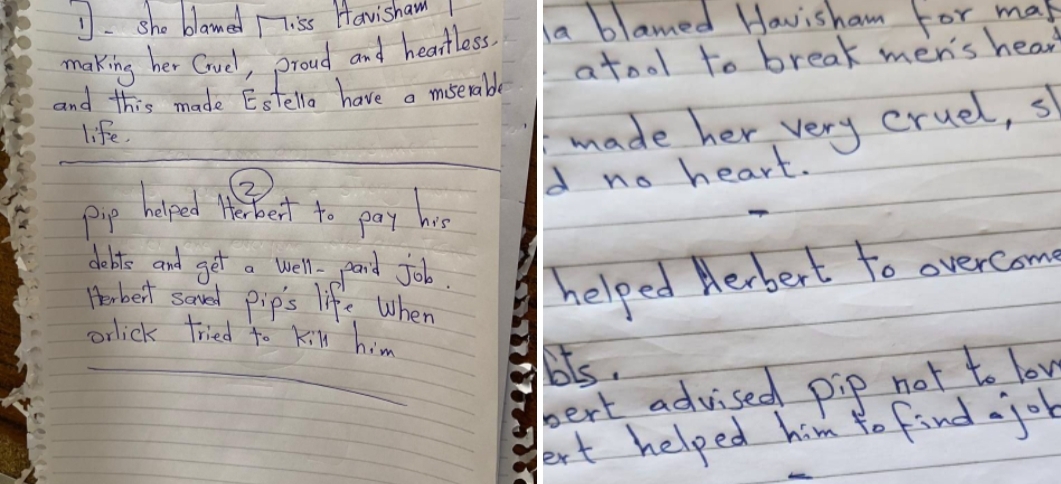 1]- she blamed Miss Havisham
making her Cruel, proud and heartless.
and this made Estella have a miserable
life.
2
pip helped Herbert to pay his
debts and get a well-paid job.
Herbert saved pip's life when
orlick tried to kill him
la blamed Havisham for mak
atool to break men's hear
made her very cruel, s
d no heart.
helped Herbert to overcome
bts.
bert advised pip not to lov
ert helped him to find a job